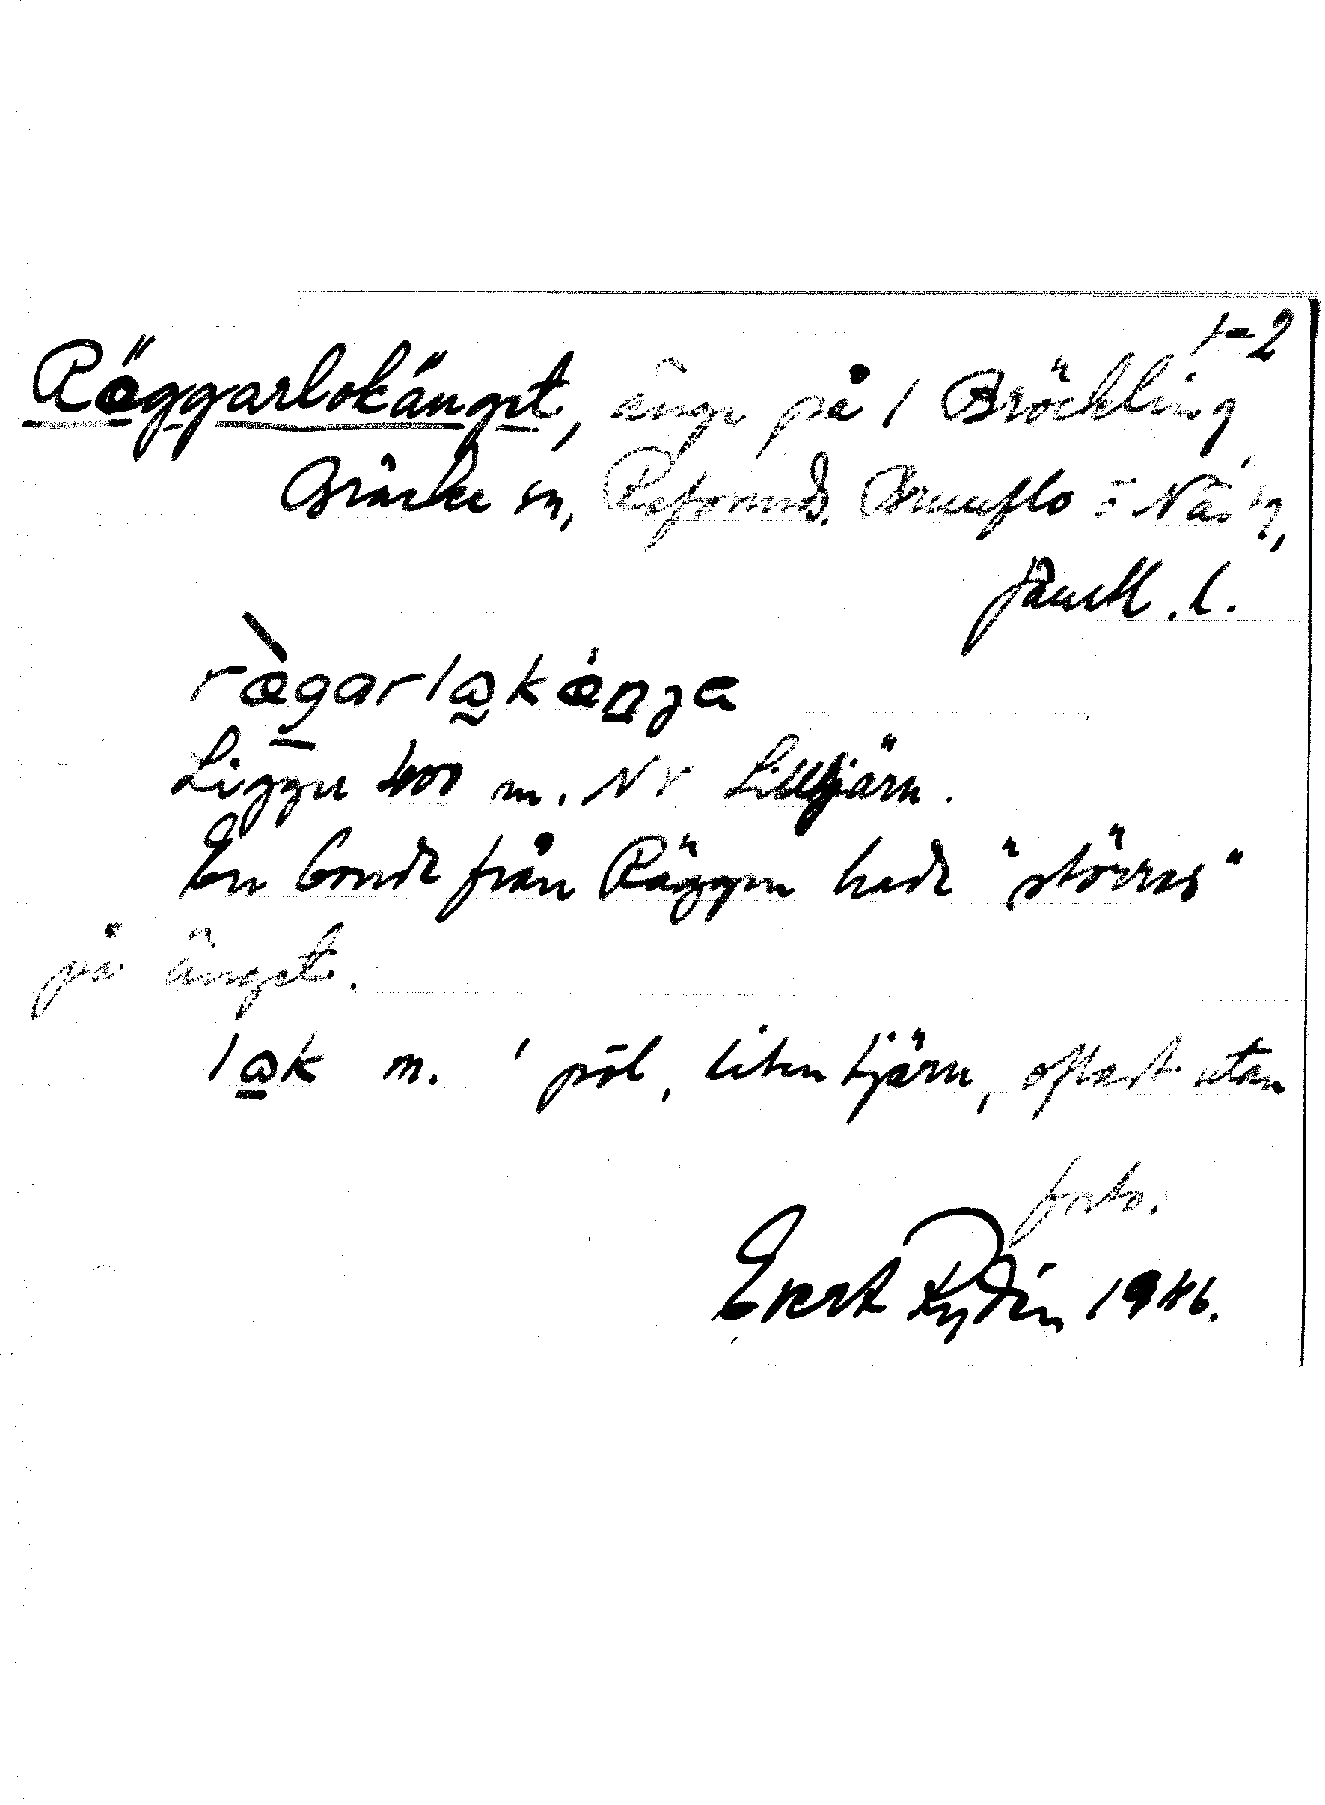 Räggarlokänget, änge på 1 Bröckling 1-2
Bräcke sn, Refsunds, Brunflo o Näs tg,
Jämtl. l.
rægarlakæŋʒa
Ligger 400 m. NV Lilltjärn.
En bonde från Räggen hade "störras"
på änget.
lak m. 'pöl, liten tjärn, oftast utan
fors.
Evert Rydin 1946.